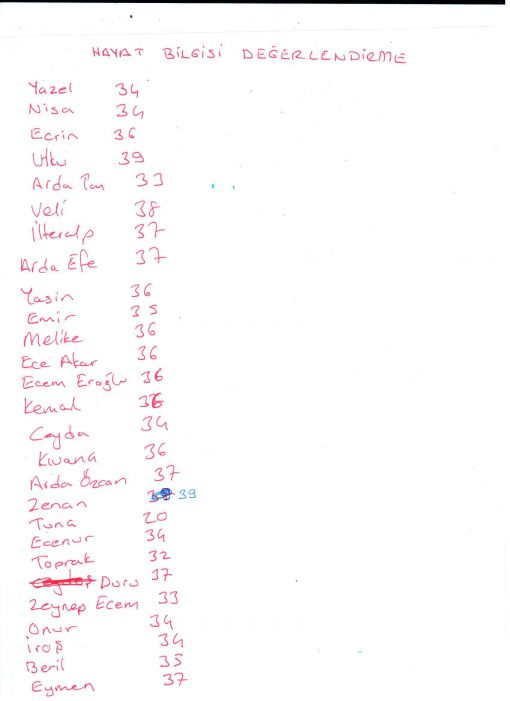 HAYAT BİLGİSİ DEĞERLENDİRME
Yazel 34
Nisa 34
Ecrin 36
Utku 39
Arda Can 33
Veli 38
İlteralp 37
Arda Efe 37
Yasin 36
Emir 35
Melike 36
Ece Akar 36
Ecem Eroğlu 36
Kemal 36
Ceyda 34
Kıvanç 36
Arda Özcan 37
Zenan 39
Tuna 20
Ecenur 34
Toprak 32
Duru 37
Zeynep Ecem 33
Onur 34
34
Beril 35
Eymen 37